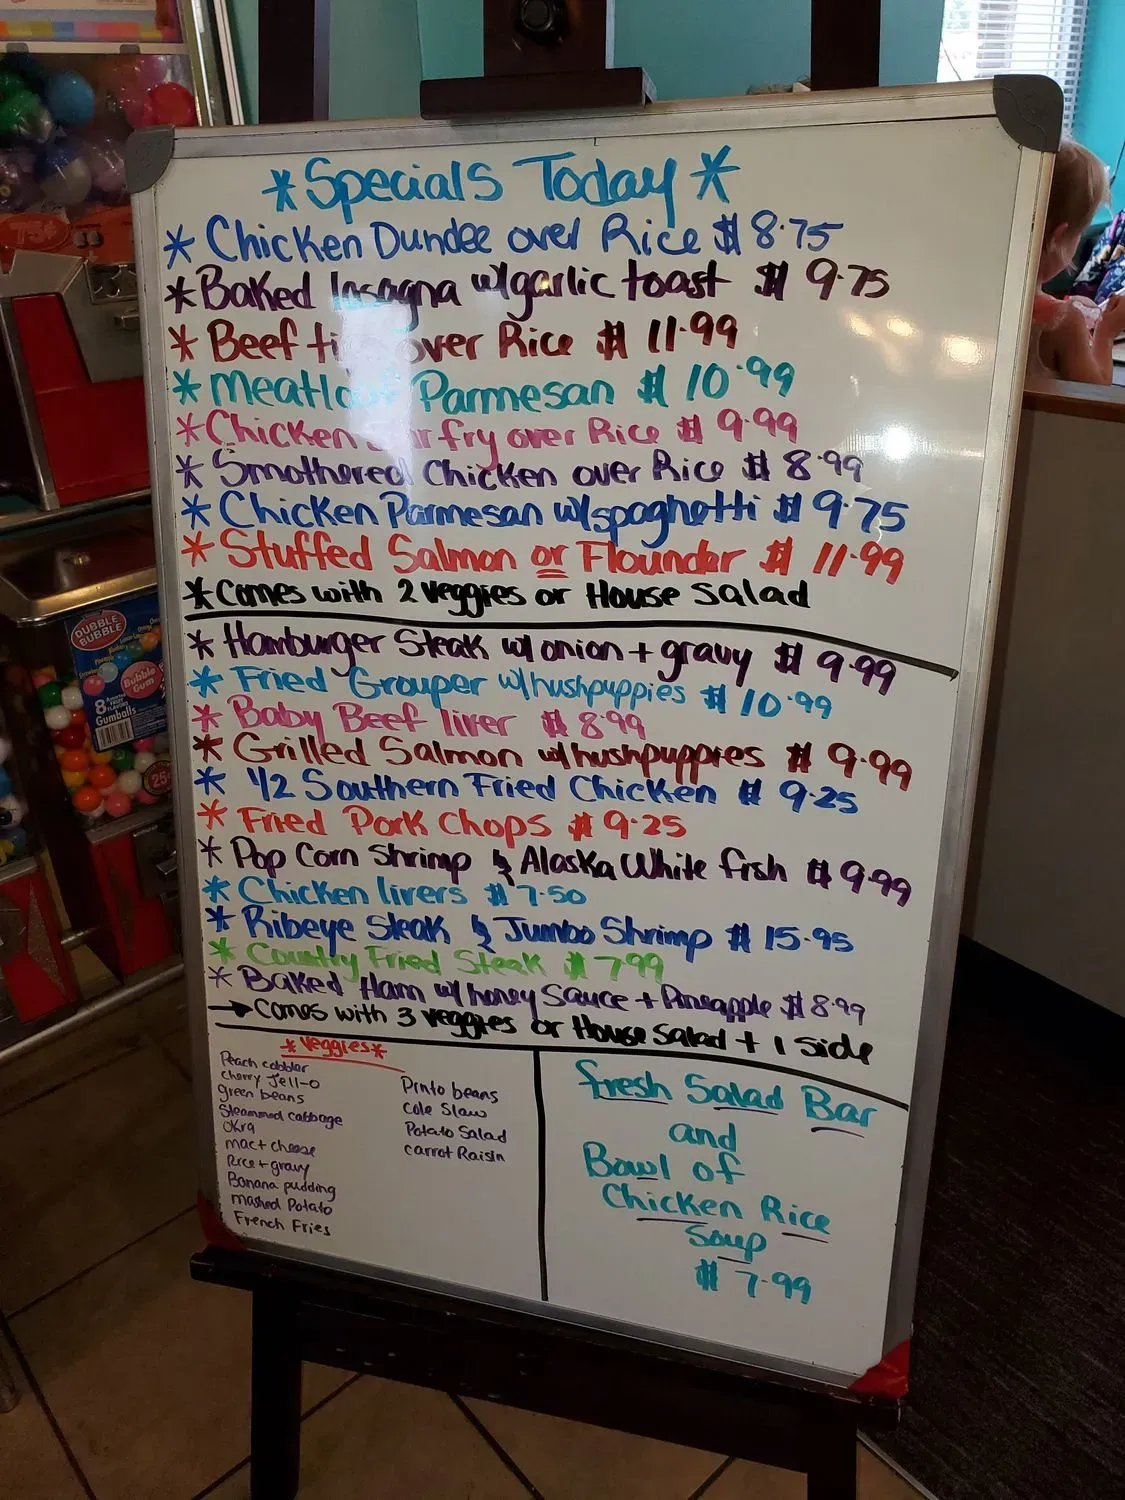 *Specials Today*
* Chicken Dundee over Rice $ 8.75
* Baked lasagna w/garlic toast $ 9.75
* Beef over Rice $ 11.99
* Meatloaf Parmesan $ 10.99
* Chicken fry over Rice $ 9.99
* Smothered Chicken over Rice $ 8.99
* Chicken Parmesan w/spaghetti $ 9.75
* Stuffed Salmon or Flounder $ 11.99
* Comes with 2 veggies or House Salad
* Hamburger Steak w/ onion + gravy $ 9.99
* Fried Grouper w/hushpuppies $ 10.99
* Baby Beef liver $ 8.99
* Grilled Salmon w/hushpuppies $ 9.99
* 1/2 Southern Fried Chicken $ 9.25
* Fried Pork Chops $ 9.25
* Pop Corn Shrimp & Alaska White fish $ 9.99
* Chicken livers $ 7.50
* Ribeye Steak & Jumbo Shrimp $ 15.95
* Country Fried Steak $ 7.99
* Baked Ham w/ honey Sauce + Pineapple $ 8.99
→ Comes with 3 veggies or House Salad + 1 side
*Veggies*
Peach cobbler
cherry Jell-o
green beans
Steammed cabbage
Okra
mac + cheese
Rice + gravy
Banana pudding
mashed Potato
French Fries
Pinto beans
Cole Slaw
Potato Salad
carrot Raisin
fresh Salad Bar
and
Bowl of
Chicken Rice
Soup
$ 7.99
75¢
DUBBLE
BUBBLE
Bubble
Gum
8
Gumballs
25¢